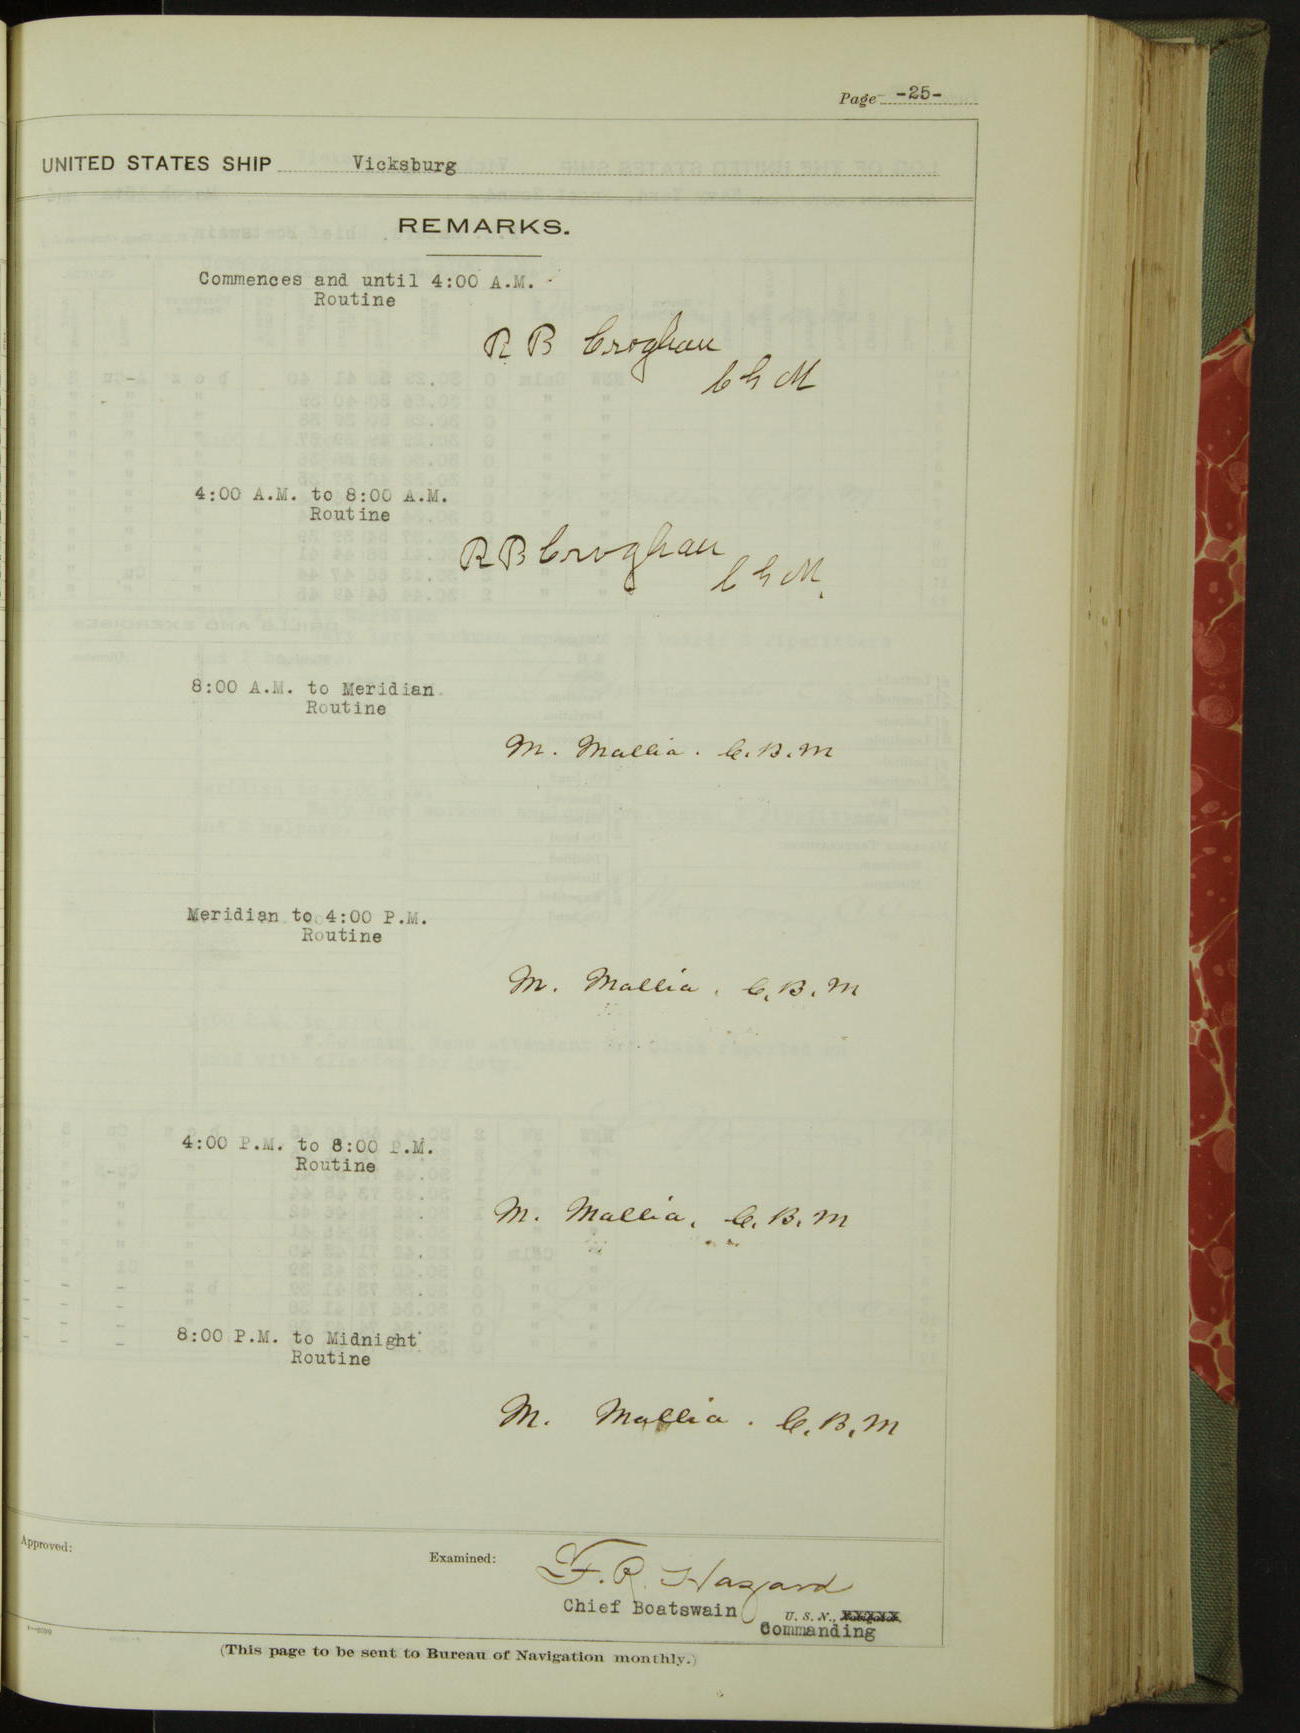 Page -25-
UNITED STATES SHIP Vicksburg
REMARKS.
Commences and until 4:00 A.M.
Routine
R B Croghan
C G M
4:00 A.M. to 8:00 A.M.
Routine
R B Croghan
C G M.
8:00 A.M. to Meridian
Routine
M. Mallia. C.B.M
Meridian to 4:00 P.M.
Routine
M. Mallia. C.B.M
4:00 P.M. to 8:00 P.M.
Routine
M. Mallia. C.B.M
8:00 P.M. to Midnight
Routine
M. Mallia. C.B.M
Approved:
Examined:
F. R. Hazard
Chief Boatswain U. S. N.,
Commanding
(This page to be sent to Bureau of Navigation monthly.)